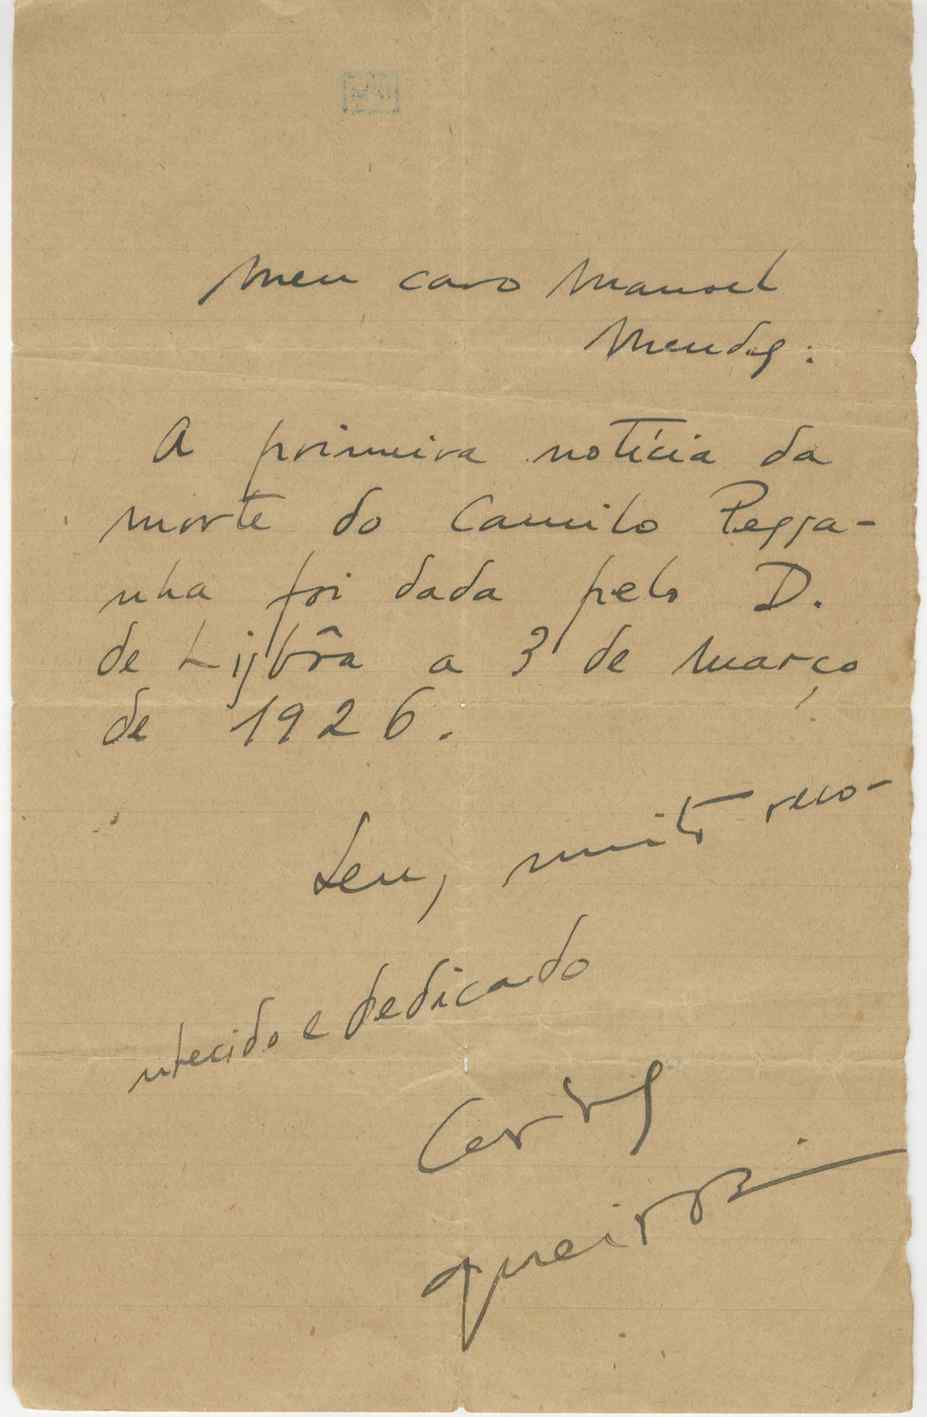 Meu caro Manoel
Mendes:
A primeira notícia da
morte do Camilo Pessa-
nha foi dada pelo D.
de Lisbôa a 3 de março
de 1926.
Seu, muito reco-
nhecido e dedicado
Carlos
Queiroz